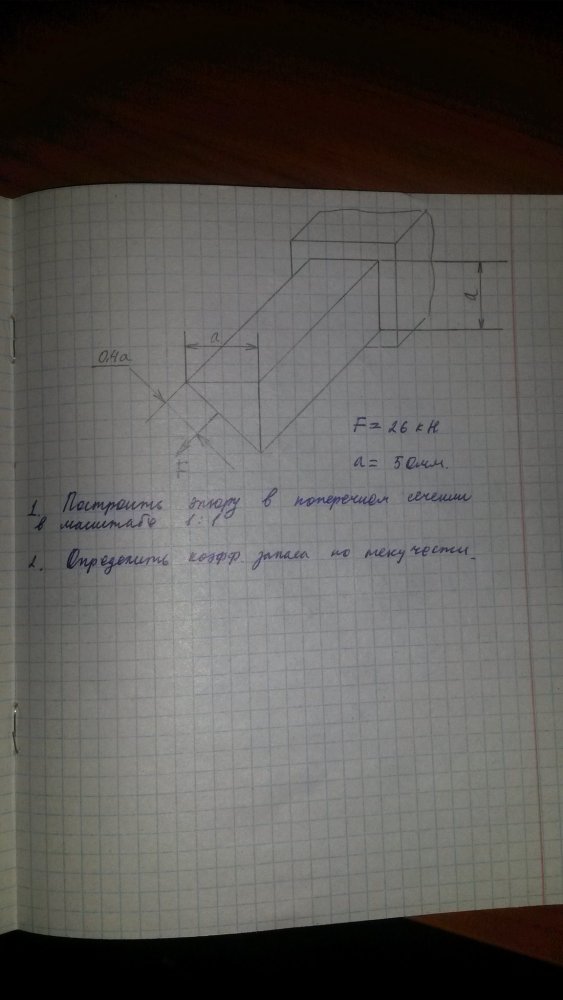 a
a
0.4a
F
F = 26 кН
a = 50мм.
1. Построить эпюру в поперечном сечении
в масштабе 1:1
2. Определить коэфф. запаса по текучести.